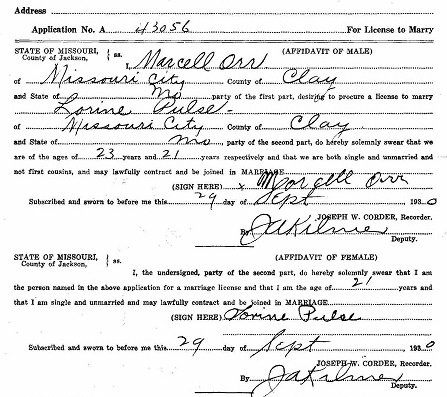 Address
Application No. A 43056 For License to Marry
STATE OF MISSOURI, County of Jackson, } ss. (AFFIDAVIT OF MALE)
I, Marcell Orr
of Missouri City County of Clay
and State of Mo party of the first part, desiring to procure a license to marry
Lorine Pulse
of Missouri City County of Clay
and State of Mo, party of the second part, do hereby solemnly swear that we
are of the ages of 23 years and 21 years respectively and that we are both single and unmarried and
not first cousins, and may lawfully contract and be joined in MARRIAGE
(SIGN HERE) x Marcell Orr
Subscribed and sworn to before me this 29 day of Sept 1930
JOSEPH W. CORDER, Recorder.
By J A Kilmer Deputy.
STATE OF MISSOURI, County of Jackson, } ss. (AFFIDAVIT OF FEMALE)
I, the undersigned, party of the second part, do hereby solemnly swear that I am
the person named in the above application for a marriage license and that I am the age of 21 years and
that I am single and unmarried and may lawfully contract and be joined in MARRIAGE
(SIGN HERE) Lorine Pulse
Subscribed and sworn to before me this 29 day of Sept 1930
JOSEPH W. CORDER, Recorder.
By J A Kilmer Deputy.